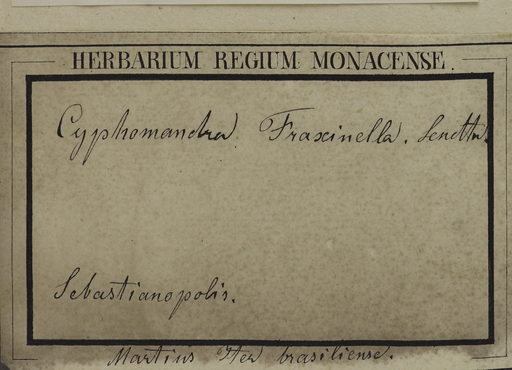 HERBARIUM REGIUM MONACENSE.
Cyphomandra Fraxinella. Sendtn.
Sebastianopolis.
Martius Iter brasiliense.